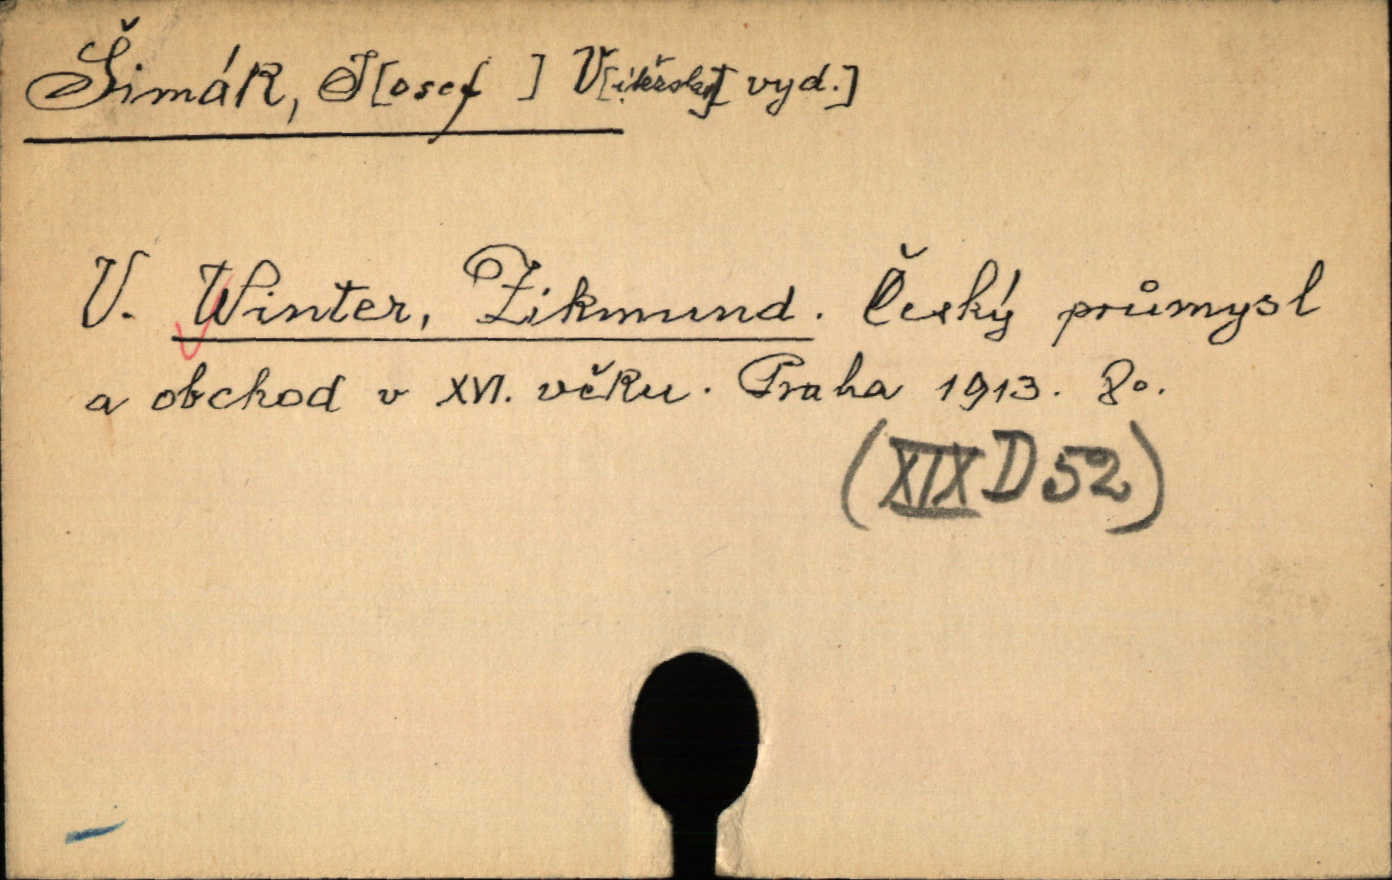 Šimák, J[osef ] V[ítězslav] [vyd.]
V. Winter, Zikmund. Český průmysl
a obchod v XVI. věku. Praha 1913. 8o.
(XIX D 52)